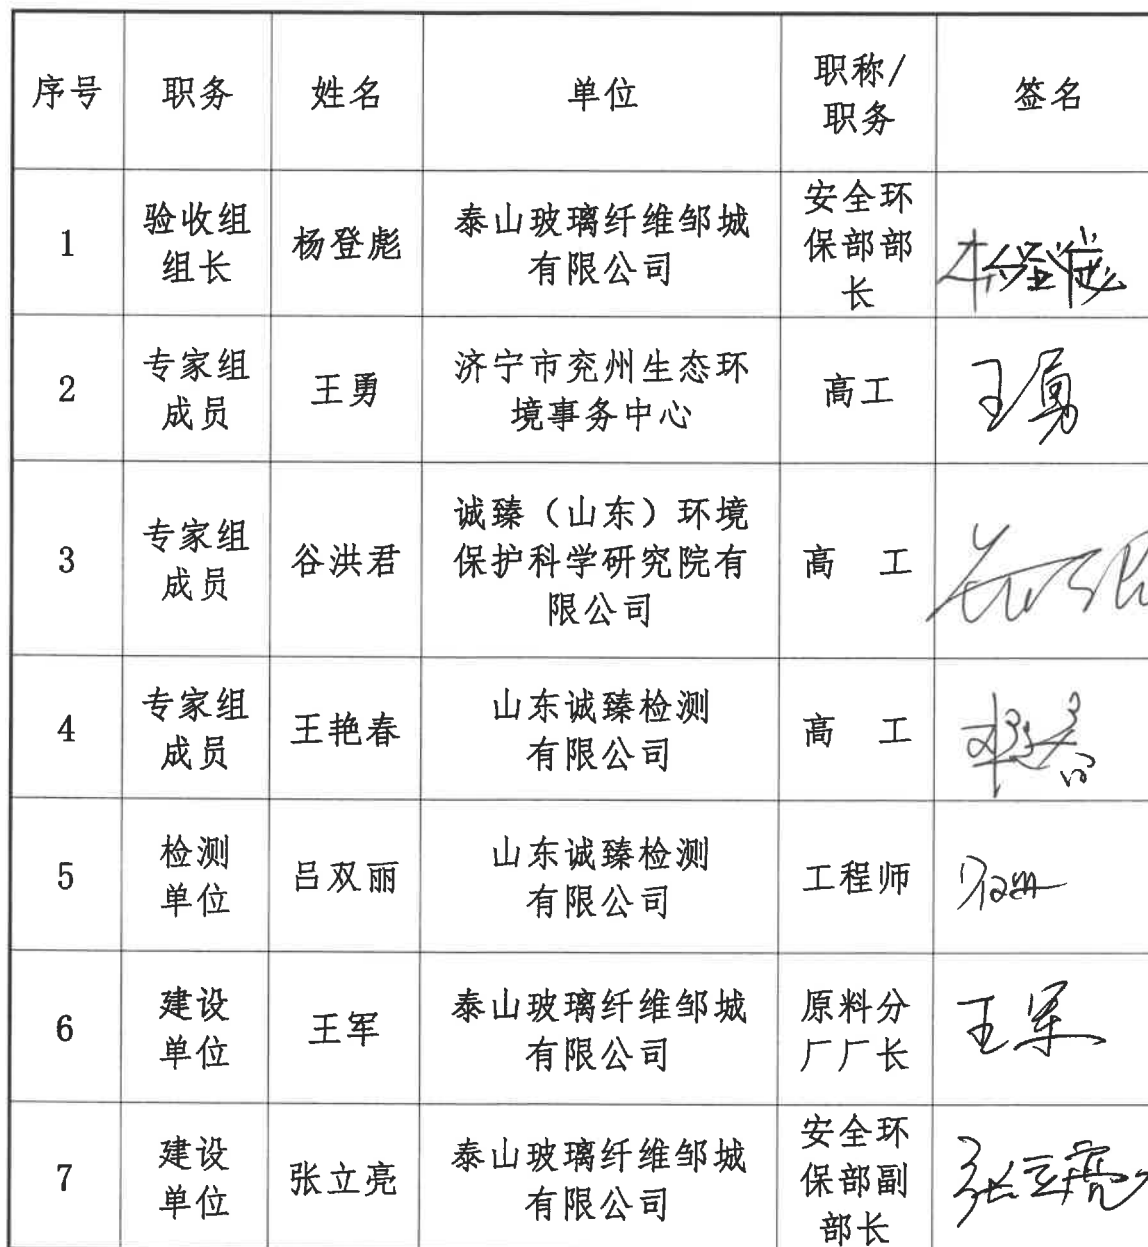 序号 职务 姓名 单位 职称/
职务 签名
1 验收组
组长 杨登彪 泰山玻璃纤维邹城
有限公司 安全环
保部部
长 杨登彪
2 专家组
成员 王勇 济宁市兖州生态环
境事务中心 高工 王勇
3 专家组
成员 谷洪君 诚臻（山东）环境
保护科学研究院有
限公司 高 工
4 专家组
成员 王艳春 山东诚臻检测
有限公司 高 工
5 检测
单位 吕双丽 山东诚臻检测
有限公司 工程师
6 建设
单位 王军 泰山玻璃纤维邹城
有限公司 原料分
厂厂长 王军
7 建设
单位 张立亮 泰山玻璃纤维邹城
有限公司 安全环
保部副
部长 张立亮